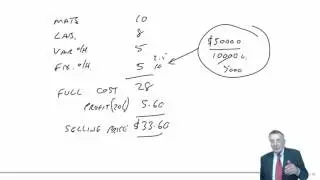 MATS 10
LAB. 8
VAR O/H 5
FIX. O/H. 5
FULL COST 28
PROFIT (20%) 5.60
SELLING PRICE $33.60
$50000
10000 u.